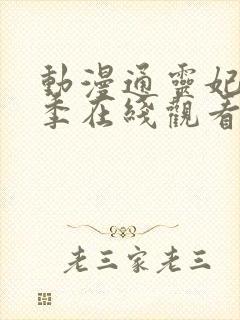 動漫通靈妃
季在綫觀看
老三家老三